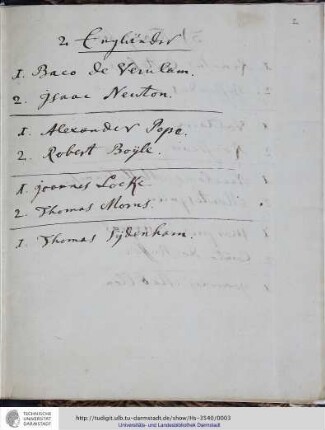 2
2 Engländer
1. Baco de Verulam.
2. Isaac Newton.
1. Alexander Pope.
2. Robert Boÿle.
1. joannes Locke.
2. Thomas Morus.
1. Thomas Sÿdenham.
TECHNISCHE
UNIVERSITÄT
DARMSTADT
http://tudigit.ulb.tu-darmstadt.de/show/Hs-3540/0003
Universitäts- und Landesbibliothek Darmstadt